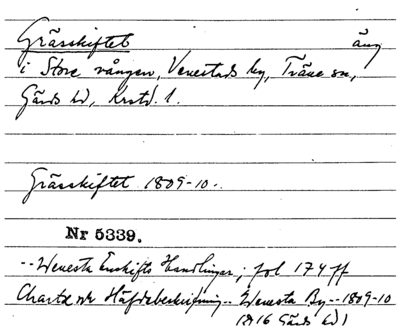 Grässkiftet äng
i Store vången, Venestads by, Träne sn,
Gärds hd, Krstd. l.
Grässkiftet 1809-10.
Nr 5339.
--Wenesta Enskifts Handlingar; fol 174 ff
Charta och Häfdebeskrifning-- Wenesta By--1809-10
(A16 Gärds hd)